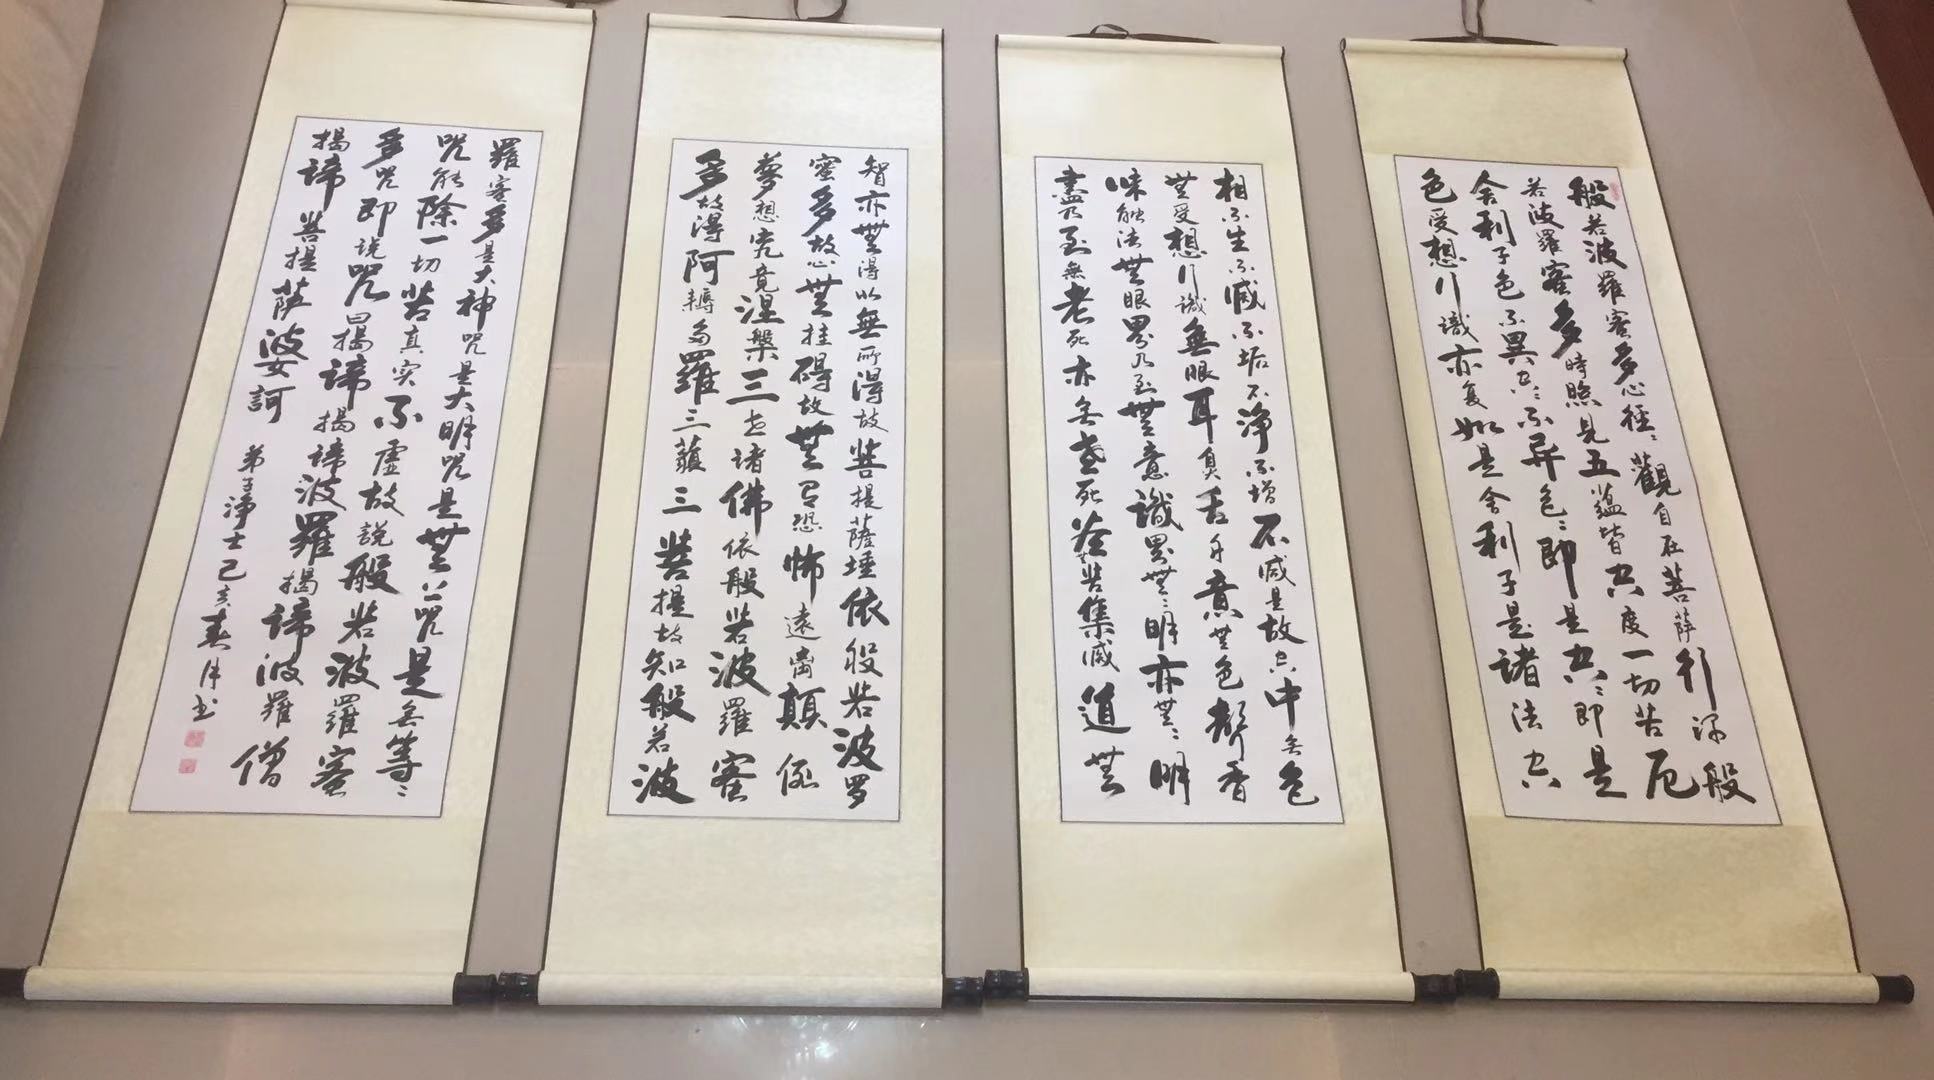 般若波羅蜜多心径〻觀自在菩萨行深般
若波羅蜜多時照見五蕴皆空度一切苦厄
舍利子色不異空〻不异色〻即是空〻即是
色受想行識亦复如是舍利子是諸法空
相不生不滅不垢不淨不增不减是故空中无色
無受想行識無眼耳鼻舌身意無色聲香
味触法無眼界乃至無意識界無〻明亦無〻明
盡乃至無老死亦无老死盡無苦集滅道無
智亦無得以無所得故菩提薩埵依般若波罗
蜜多故心無挂碍故無有恐怖遠离顛倒
夢想究竟涅槃三世諸佛依般若波羅蜜
多故得阿耨多羅三藐三菩提故知般若波
羅蜜多是大神咒是大明咒是無上咒是无等〻
咒能除一切苦真实不虚故説般若波羅蜜
多咒即説咒曰揭諦揭諦波羅揭諦波羅僧
揭諦菩提萨婆訶
弟子淨士己亥春月书